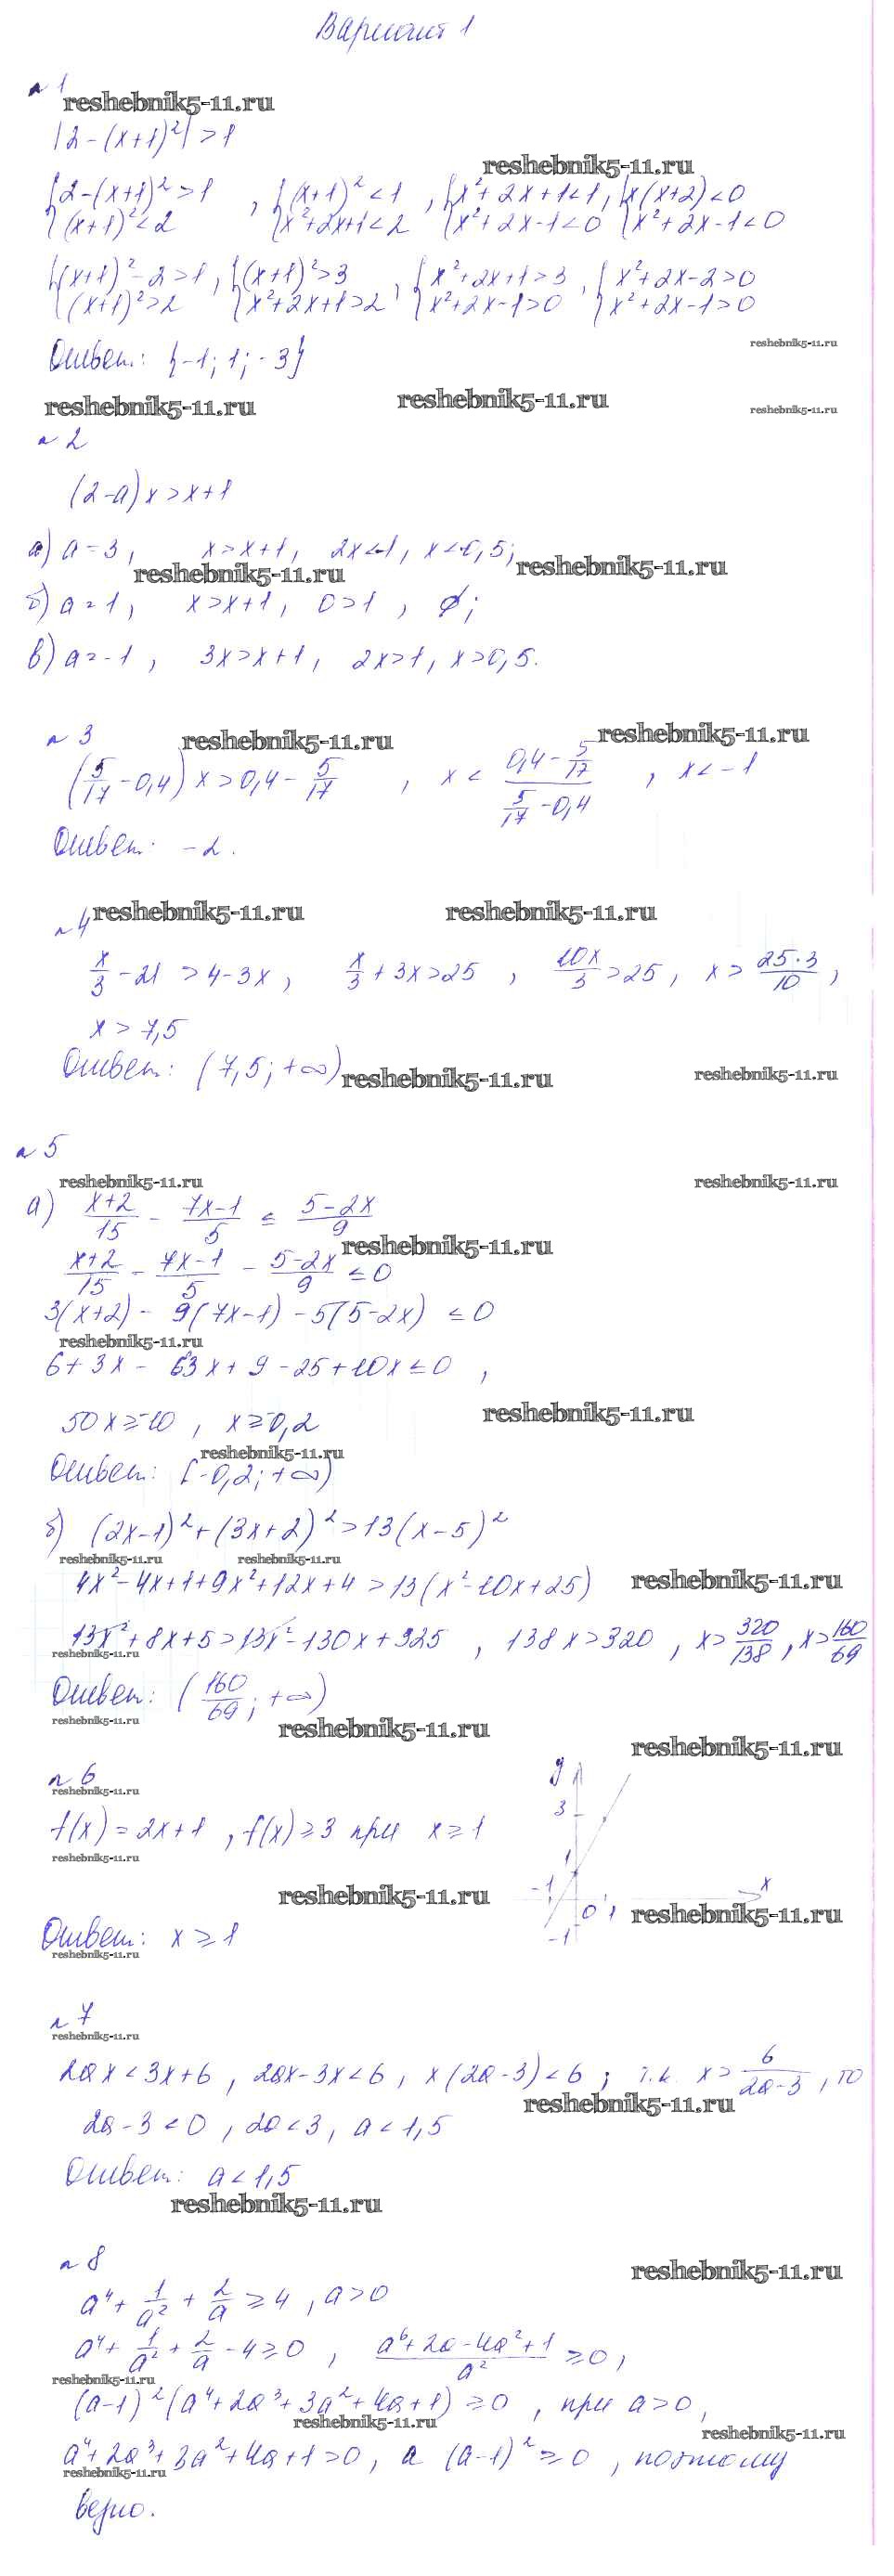 Вариант 1
№ 1
reshebnik5-11.ru
|2-(x+1)²|>1
reshebnik5-11.ru
{2-(x+1)²>1 , {(x+1)²<1 , {x²+2x+1<1, {x(x+2)<0
{(x+1)²<2 {x²+2x+1<2 {x²+2x-1<0 {x²+2x-1<0
{(x+1)²-2>1, {(x+1)²>3 , {x²+2x+1>3 , {x²+2x-2>0
{(x+1)²>2 {x²+2x+1>2 {x²+2x-1>0 {x²+2x-1>0
reshebnik5-11.ru
Ответ: {-1; 1; -3}
reshebnik5-11.ru reshebnik5-11.ru reshebnik5-11.ru
№ 2
(2-a)x>x+1
а) a=3, x>x+1, 2x<-1, x<-0,5;
reshebnik5-11.ru reshebnik5-11.ru
б) a=1, x>x+1, 0>1, ∅;
в) a=-1, 3x>x+1, 2x>1, x>0,5.
№ 3
reshebnik5-11.ru reshebnik5-11.ru
(5/17-0,4)x>0,4-5/17 , x< (0,4-5/17)/(5/17-0,4) , x<-1
Ответ: -2.
№ 4
reshebnik5-11.ru reshebnik5-11.ru
x/3-21>4-3x, x/3+3x>25, 10x/3>25, x>25·3/10,
x>7,5
Ответ: (7,5; +∞)
reshebnik5-11.ru reshebnik5-11.ru
№ 5
reshebnik5-11.ru reshebnik5-11.ru
а) (x+2)/15 - (7x-1)/5 ≤ (5-2x)/9
reshebnik5-11.ru
(x+2)/15 - (7x-1)/5 - (5-2x)/9 ≤0
3(x+2)- 9(7x-1)-5(5-2x) ≤0
reshebnik5-11.ru
6+3x-63x+9-25+10x≤0,
50x≥-10, x≥-0,2
reshebnik5-11.ru
reshebnik5-11.ru
Ответ: [-0,2; +∞)
б) (2x-1)²+(3x+2)²>13(x-5)²
reshebnik5-11.ru reshebnik5-11.ru
4x²-4x+1+9x²+12x+4>13(x²-10x+25)
reshebnik5-11.ru
13x²+8x+5>13x²-130x+325, 138x>320, x>320/138, x>160/69
reshebnik5-11.ru
Ответ: (160/69; +∞)
reshebnik5-11.ru
reshebnik5-11.ru
reshebnik5-11.ru
№ 6
reshebnik5-11.ru
f(x)=2x+1, f(x)≥3 при x≥1
reshebnik5-11.ru
y
3
1
-1
x
0 1
-1
reshebnik5-11.ru
reshebnik5-11.ru
Ответ: x≥1
reshebnik5-11.ru
№ 7
reshebnik5-11.ru
2ax<3x+6, 2ax-3x<6, x(2a-3)<6; т.к. x>6/(2a-3), то
reshebnik5-11.ru
2a-3<0, 2a<3, a<1,5
Ответ: a<1,5
reshebnik5-11.ru
№ 8
reshebnik5-11.ru
a⁴+1/a²+2/a≥4, a>0
a⁴+1/a²+2/a-4≥0, (a⁶+2a-4a²+1)/a²≥0,
reshebnik5-11.ru
(a-1)²(a⁴+2a³+3a²+4a+1)≥0, при a>0,
reshebnik5-11.ru
reshebnik5-11.ru
a⁴+2a³+3a²+4a+1>0, а (a-1)²≥0, поэтому
reshebnik5-11.ru
верно.